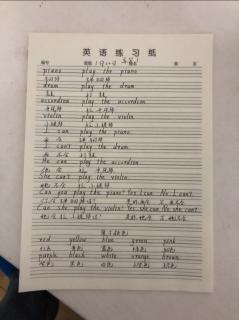 英语练习纸
piano play the piano.
钢琴 弹钢琴
drum play the drum.
鼓 打鼓
accordion play the accordion.
手风琴 拉手风琴
violin play the violin.
小提琴 拉小提琴
I can play the piano.
我 会 弹钢琴
I can't play the drum.
我 不会 打鼓
He can play the accordion.
他 会 拉手风琴
She can't play the violin.
她 不会 拉小提琴
Can you play the piano? Yes, I can. No, I can't.
Can she play the violin? Yes, she can. No, she can't.
red yellow blue green pink
红色 黄色 蓝色 绿色 粉色
purple black white orange brown
紫色 黑色 白色 橙色 棕色